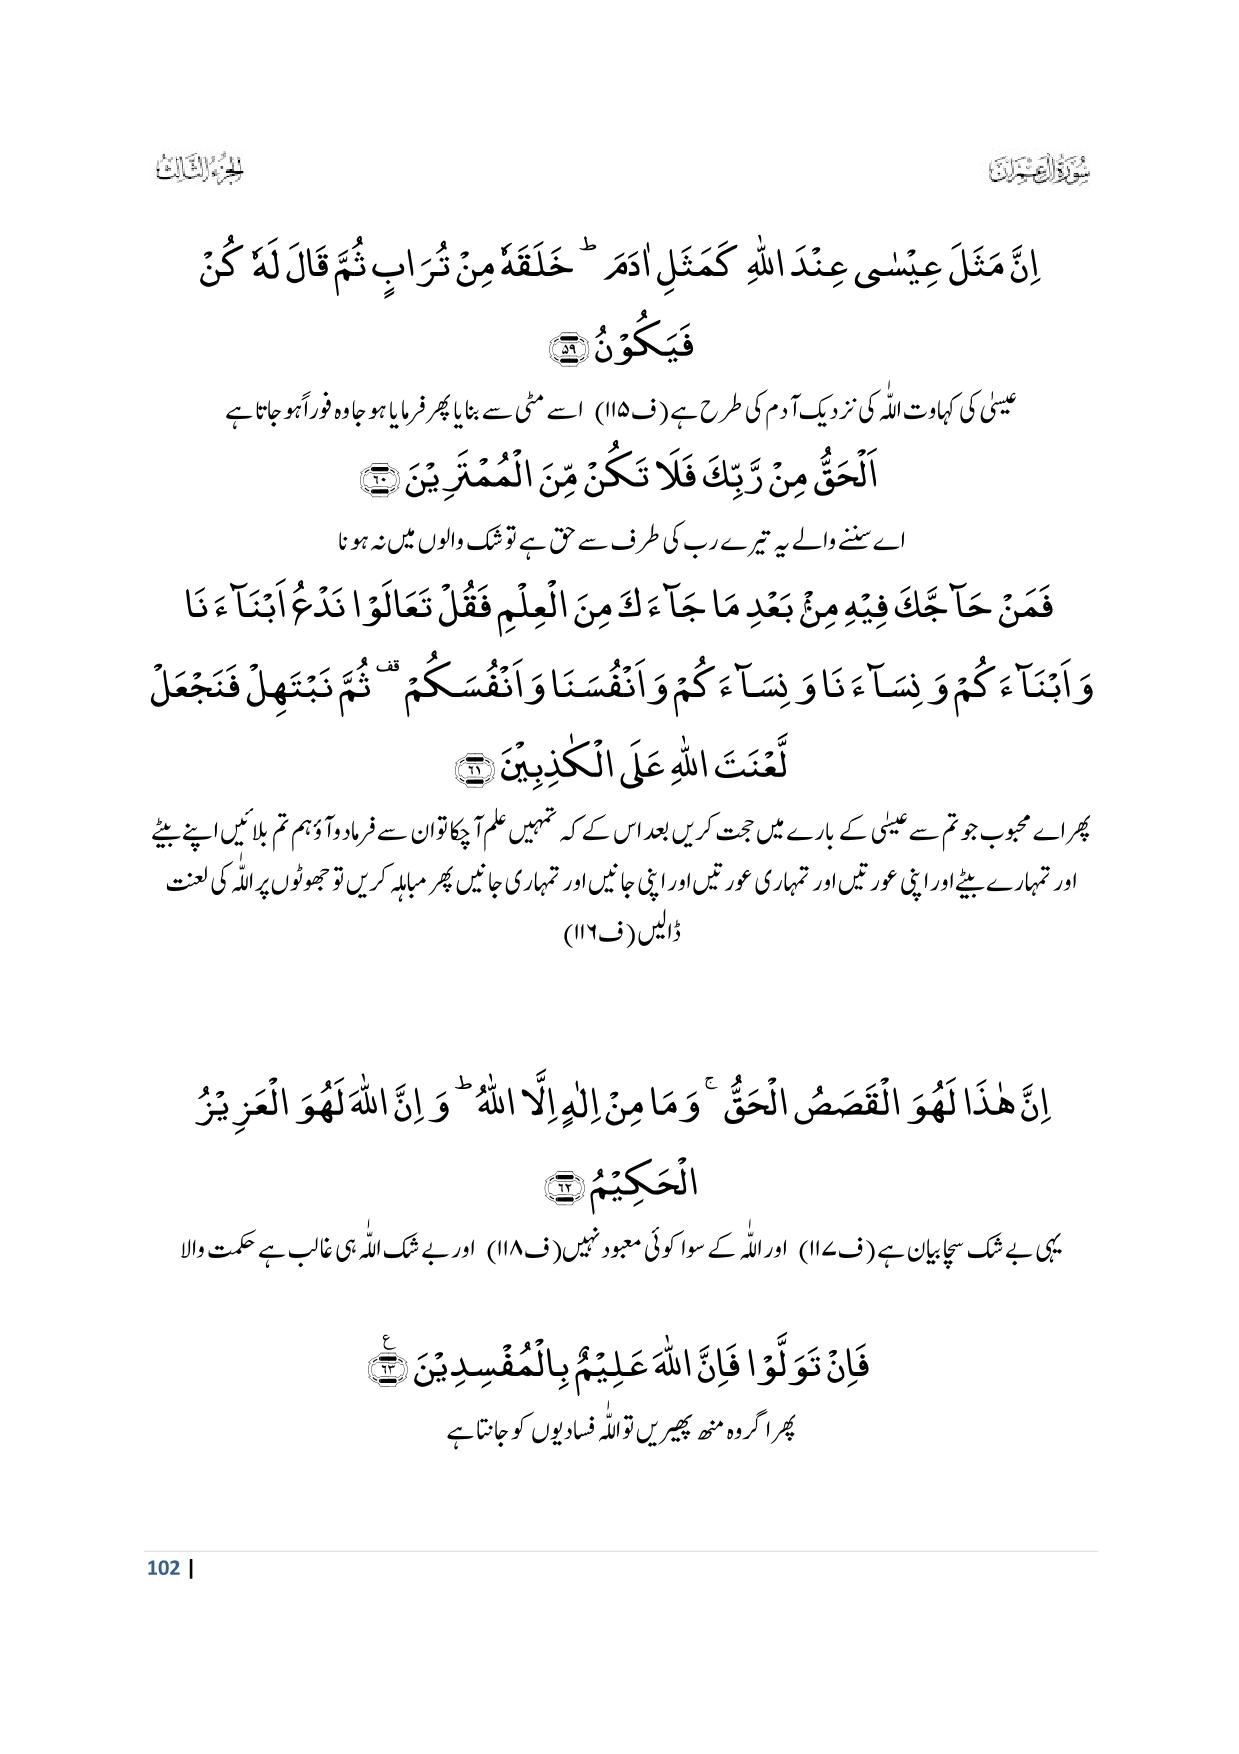 سُوْرَةُ اٰلِ عِمْرَان
الجُزْءُ الثَّالِث
اِنَّ مَثَلَ عِيْسٰى عِنْدَ اللّٰهِ كَمَثَلِ اٰدَمَ ؕ خَلَقَهٗ مِنْ تُرَابٍ ثُمَّ قَالَ لَهٗ كُنْ
فَيَكُوْنُ ۵۹
عیسٰی کی کہاوت اللّٰہ کی نزدیک آدم کی طرح ہے (ف۱۱۵) اسے مٹی سے بنایا پھر فرمایا ہو جا وہ فوراً ہو جاتا ہے
اَلْحَقُّ مِنْ رَّبِّكَ فَلَا تَكُنْ مِّنَ الْمُمْتَرِيْنَ ۶۰
اے سننے والے یہ تیرے رب کی طرف سے حق ہے تو شک والوں میں نہ ہونا
فَمَنْ حَآجَّكَ فِيْهِ مِنْۢ بَعْدِ مَا جَآءَكَ مِنَ الْعِلْمِ فَقُلْ تَعَالَوْا نَدْعُ اَبْنَآءَنَا
وَاَبْنَآءَكُمْ وَنِسَآءَنَا وَنِسَآءَكُمْ وَاَنْفُسَنَا وَاَنْفُسَكُمْ قف ثُمَّ نَبْتَهِلْ فَنَجْعَلْ
لَّعْنَتَ اللّٰهِ عَلَى الْكٰذِبِيْنَ ۶۱
پھر اے محبوب جو تم سے عیسٰی کے بارے میں حجت کریں بعد اس کے کہ تمہیں علم آچکا تو ان سے فرما دو آؤ ہم تم بلائیں اپنے بیٹے
اور تمہارے بیٹے اور اپنی عورتیں اور تمہاری عورتیں اور اپنی جانیں اور تمہاری جانیں پھر مباہلہ کریں تو جھوٹوں پر اللّٰہ کی لعنت
ڈالیں (ف۱۱۶)
اِنَّ هٰذَا لَهُوَ الْقَصَصُ الْحَقُّ ۚ وَمَا مِنْ اِلٰهٍ اِلَّا اللّٰهُ ؕ وَاِنَّ اللّٰهَ لَهُوَ الْعَزِيْزُ
الْحَكِيْمُ ۶۲
یہی بے شک سچا بیان ہے (ف۱۱۷) اور اللّٰہ کے سوا کوئی معبود نہیں (ف۱۱۸) اور بے شک اللّٰہ ہی غالب ہے حکمت والا
فَاِنْ تَوَلَّوْا فَاِنَّ اللّٰهَ عَلِيْمٌۢ بِالْمُفْسِدِيْنَ ۶۳ ع
پھر اگر وہ منھ پھیریں تو اللّٰہ فسادیوں کو جانتا ہے
102 |